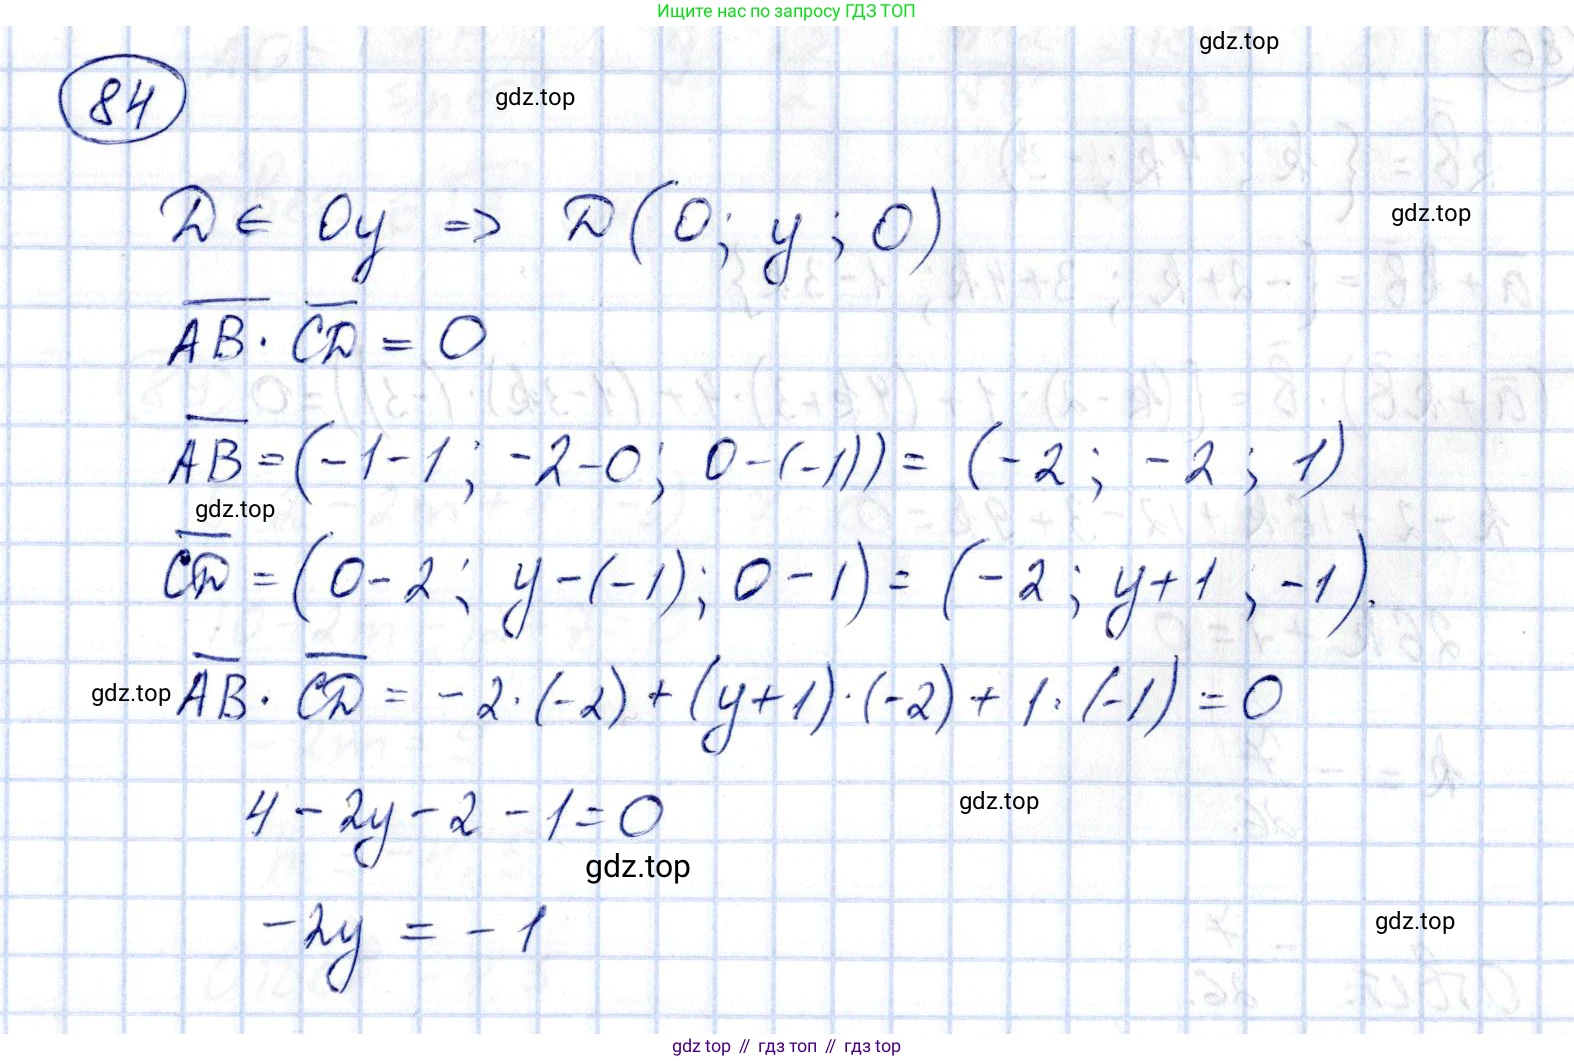 Ищите нас по запросу ГДЗ ТОП
gdz.top
84
gdz.top
D ∈ Oy => D(0; y; 0)
gdz.top
AB · CD = 0
AB = (-1-1; -2-0; 0-(-1)) = (-2; -2; 1)
gdz.top
CD = (0-2; y-(-1); 0-1) = (-2; y+1; -1).
gdz.top
AB · CD = -2·(-2) + (y+1)·(-2) + 1·(-1) = 0
4 - 2y - 2 - 1 = 0
gdz.top
gdz.top
-2y = -1
gdz.top
gdz top // гдз топ // гдз top